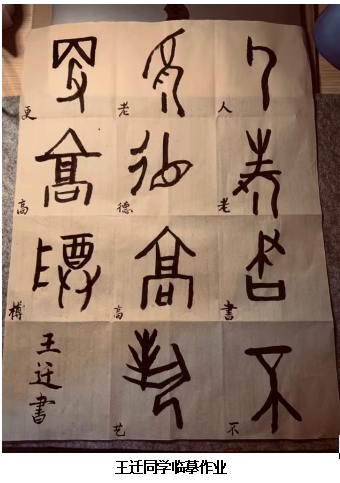 人老書不
老德高艺
更高
王迁書
王迁同学临摹作业